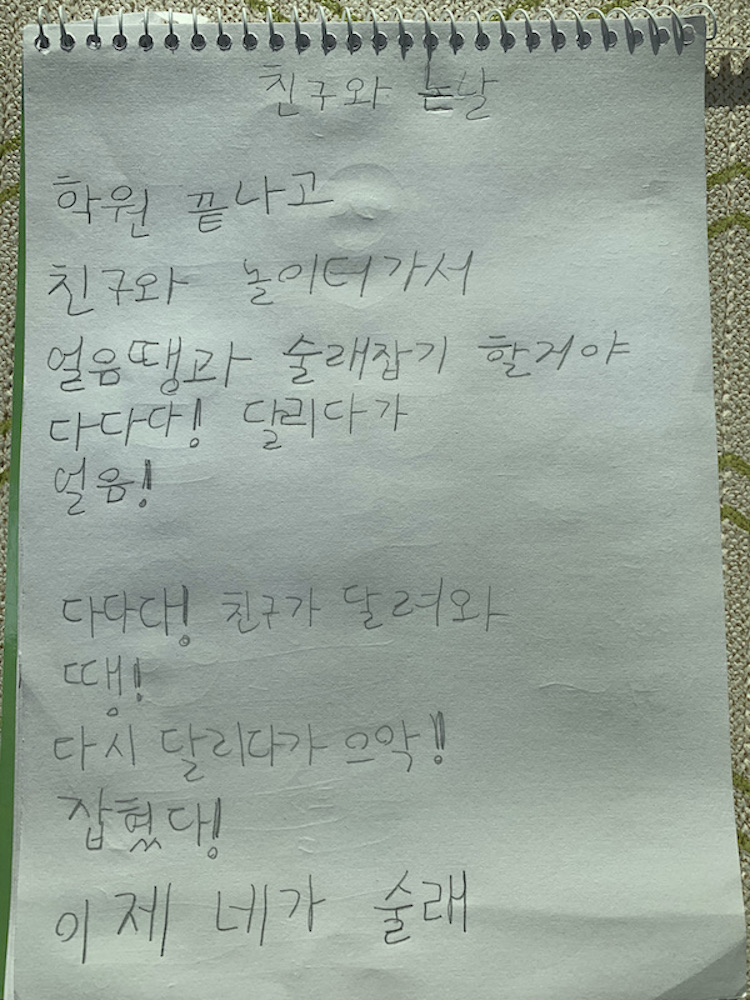 친구와 논날
학원 끝나고
친구와 놀이터가서
얼음땡과 술래잡기 할거야
다다다! 달리다가
얼음!
다다다! 친구가 달려와
땡!
다시 달리다가 으악!
잡혔다!
이제 네가 술래